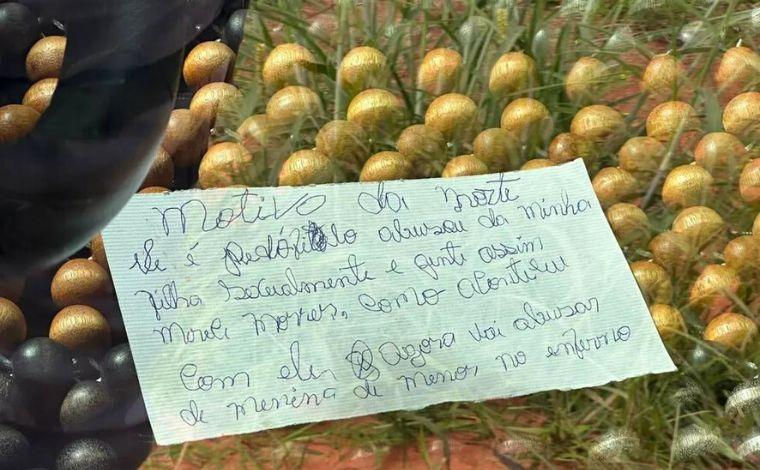 Motivo da morte
ele é pedófilo abusou da minha
filha sexualmente e gente assim
morrer, como aconteceu
com ele agora vai abusar
de menina de menor no inferno